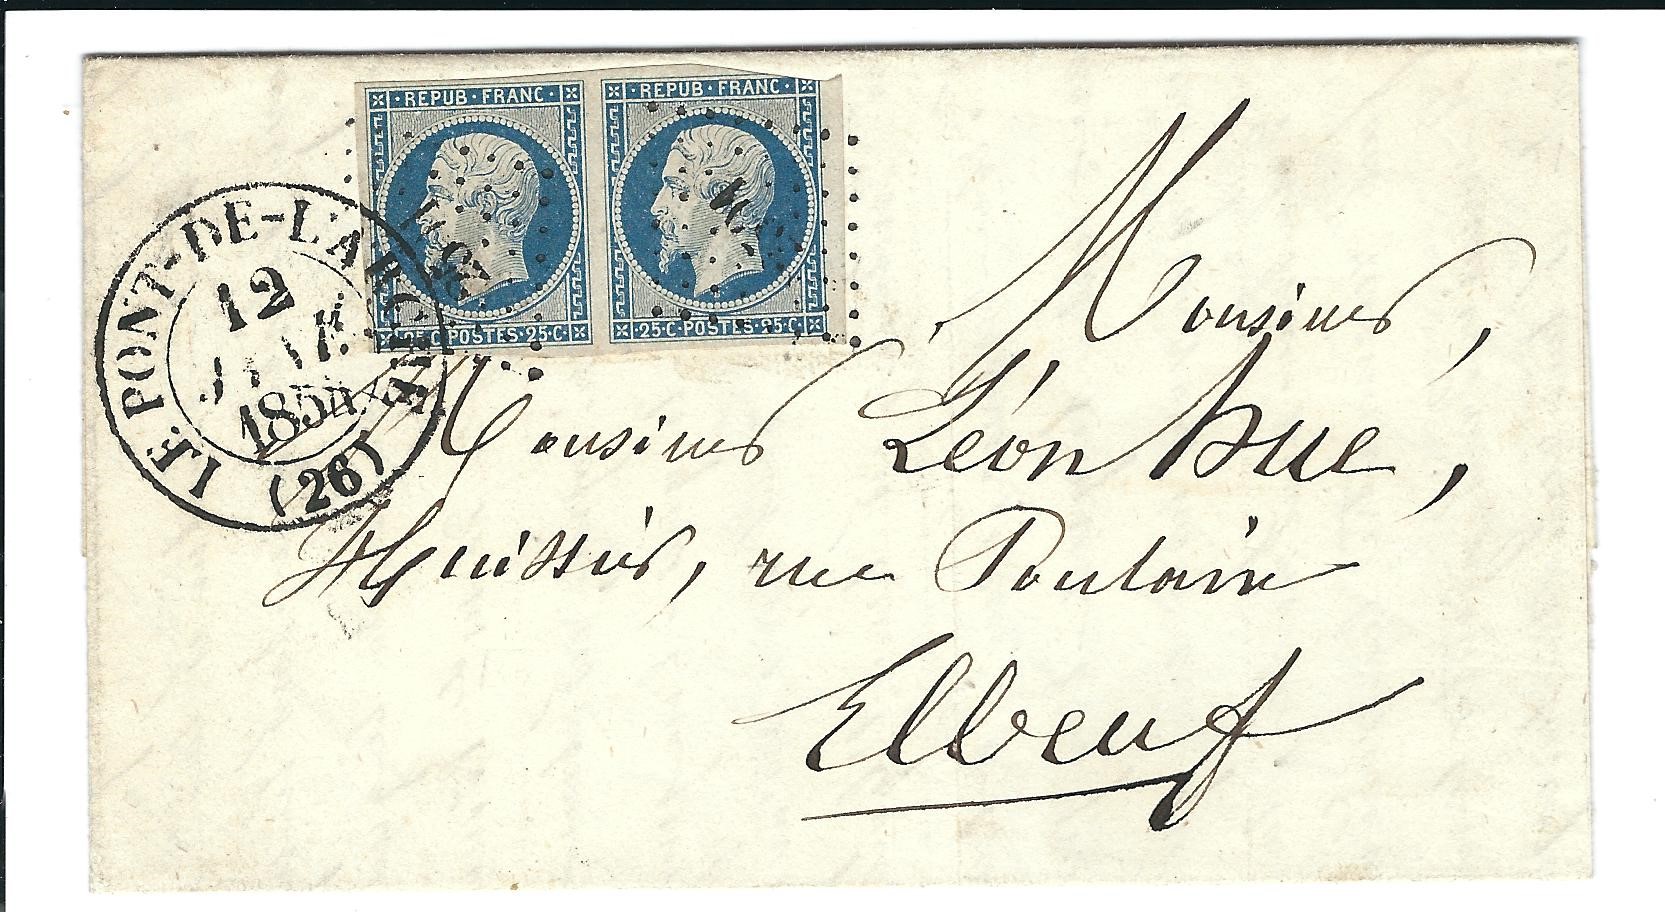 REPUB·FRANC·
·REPUB·FRANC·
25·C·POSTES·25·C·
·25·C·POSTES·25·C·
LE PONT-DE-L'ARCHE
12
JANV.
185
(26)
Monsieur,
Monsieur Léon hue,
Huissier, rue Poulain
Elbeuf